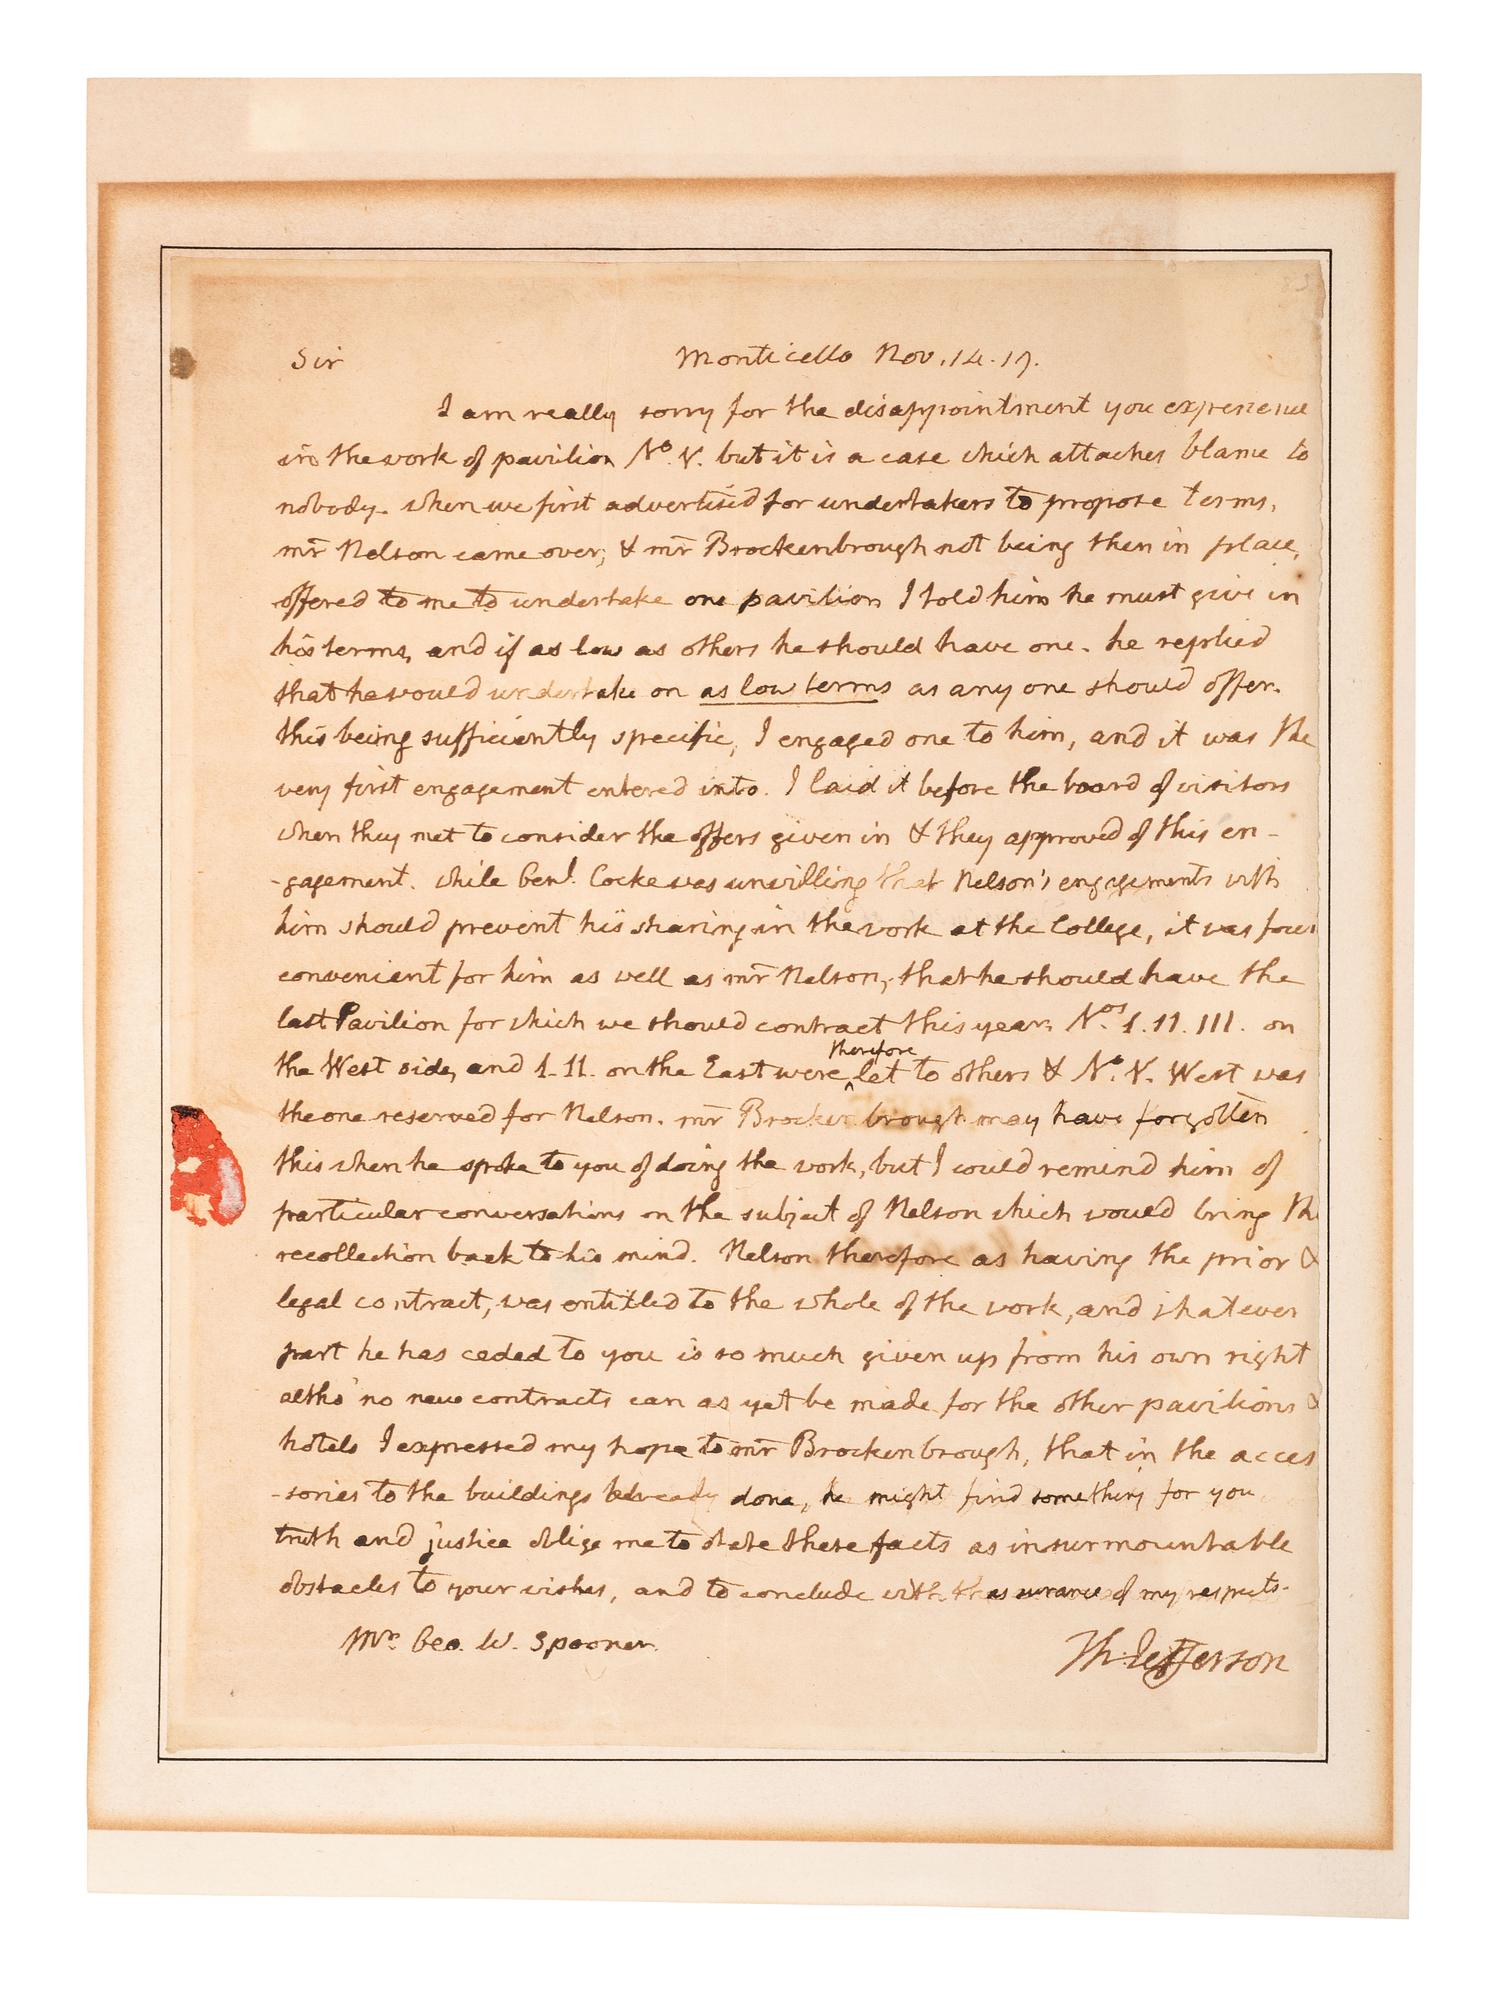 Sir Monticello Nov. 14. 19.
I am really sorry for the disappointment you experience
in the work of pavilion No. V. but it is a case which attaches blame to
nobody. when we first advertised for undertakers to propose terms,
mr Nelson came over; & mr Brockenbrough not being then in place,
offered to me to undertake one pavilion I told him he must give in
his terms, and if as low as others he should have one. he replied
that he would undertake on as low terms as any one should offer.
this being sufficiently specific, I engaged one to him, and it was the
very first engagement entered into. I laid it before the board of visitors
when they met to consider the offers given in & they approved of this en-
-gagement. while Genl. Cocke was unwilling that Nelson's engagements with
him should prevent his sharing in the work at the College, it was foun
convenient for him as well as mr Nelson, that he should have the
last Pavilion for which we should contract this year. Nos. I. II. III. on
the West side, and I. II. on the East were therefore let to others & No. V. West was
the one reserved for Nelson. mr Brockenbrough may have forgotten
this when he spoke to you of doing the work, but I could remind him of
particular conversations on the subject of Nelson which would bring the
recollection back to his mind. Nelson therefore as having the prior &
legal contract, was entitled to the whole of the work, and whatever
part he has ceded to you is so much given up from his own right
altho' no new contracts can as yet be made for the other pavilions &
hotels I expressed my hope to mr Brockenbrough, that in the acces
-sories to the buildings already done, he might find something for you
truth and justice oblige me to state these facts as insurmountable
obstacles to your wishes, and to conclude with assurance of my respects.
Mr. Geo. W. Spooner. Th: Jefferson